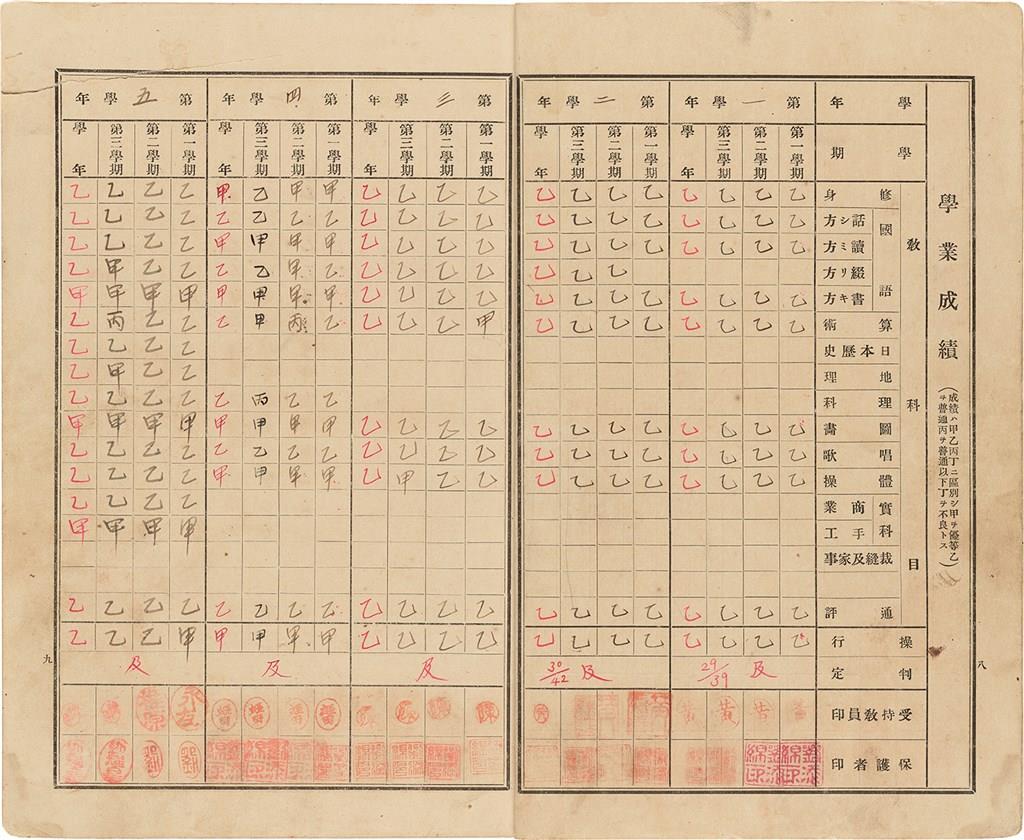 學業成績
（成績ハ甲乙丙丁ニ區別シ甲ヲ優等乙ヲ普通丙ヲ普通以下丁ヲ不良トス）
學年 第一學年 第二學年 第三學年 第四學年 第五學年
學期 第一學期 第二學期 第三學期 學年 第一學期 第二學期 第三學期 學年 第一學期 第二學期 第三學期 學年 第一學期 第二學期 第三學期 學年 第一學期 第二學期 第三學期 學年
教科目
修身 乙 乙 乙 乙 乙 乙 乙 乙 乙 乙 乙 乙 甲 甲 乙 甲 乙 乙 乙 乙
國語
話シ方 乙 乙 乙 乙 乙 乙 乙 乙 乙 乙 乙 乙 乙 乙 乙 乙 乙 乙 乙 乙
讀ミ方 乙 乙 乙 乙 乙 乙 乙 乙 乙 乙 乙 乙 甲 甲 甲 甲 乙 乙 乙 乙
綴リ方 乙 乙 乙 乙 乙 乙 乙 乙 甲 乙 乙 乙 乙 甲 乙
書キ方 乙 乙 乙 乙 乙 乙 乙 乙 乙 乙 乙 乙 甲 甲 甲 甲 甲 甲 甲 甲
算術 乙 乙 乙 乙 乙 乙 乙 乙 甲 乙 乙 乙 乙 丙 甲 乙 乙 乙 丙 乙
日本歷史 乙 乙 乙 乙
地理 乙 乙 甲 乙
理科 乙 乙 丙 乙 乙 乙 乙 乙
圖畵 乙 乙 乙 乙 乙 乙 乙 乙 乙 乙 乙 乙 甲 甲 甲 甲 甲 甲 甲 甲
唱歌 乙 乙 乙 乙 乙 乙 乙 乙 乙 乙 乙 乙 乙 乙 乙 乙 乙 乙 乙 乙
體操 乙 乙 乙 乙 乙 乙 乙 乙 乙 乙 甲 乙 甲 甲 甲 甲 乙 乙 乙 乙
實科
商業 乙 乙 乙 乙
手工 甲 甲 甲 甲
裁縫及家事
通評 乙 乙 乙 乙 乙 乙 乙 乙 乙 乙 乙 乙 乙 乙 乙 乙 乙 乙 乙 乙
操行 乙 乙 乙 乙 乙 乙 乙 乙 乙 乙 乙 乙 甲 甲 甲 甲 甲 乙 乙 乙
判定 及 29/39 及 30/42 及 及 及
受持敎員印 黃 黃 黃
保護者印 劉 劉
八
九